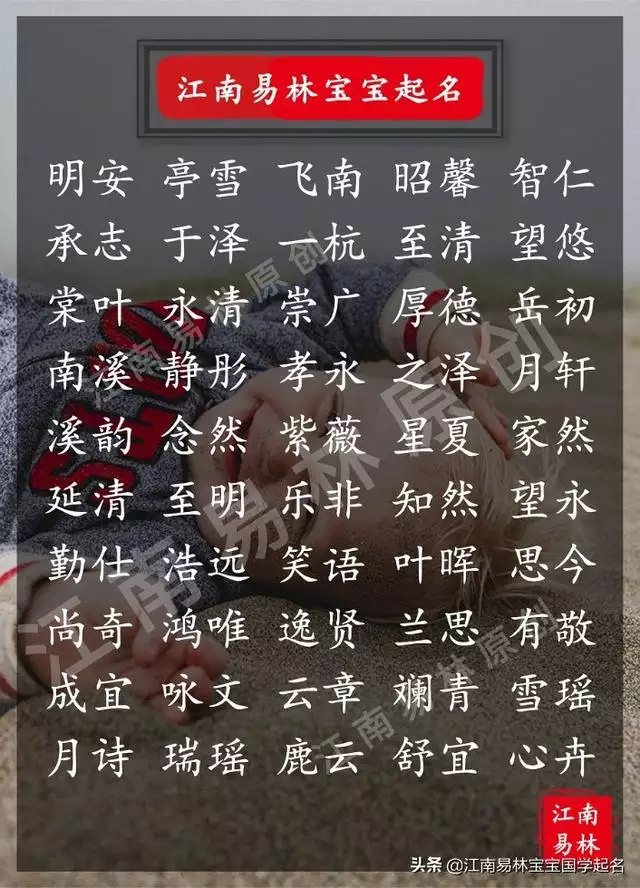 江南易林宝宝起名
明安 亭雪 飞南 昭馨 智仁
承志 于泽 一杭 至清 望悠
棠叶 永清 崇广 厚德 岳初
南溪 静彤 孝永 之泽 月轩
溪韵 念然 紫薇 星夏 家然
延清 至明 乐非 知然 望永
勤仕 浩远 笑语 叶晖 思今
尚奇 鸿唯 逸贤 兰思 有敬
成宜 咏文 云章 斓青 雪瑶
月诗 瑞瑶 鹿云 舒宜 心卉
江南易林原创
江南易林原创
江南易林原创
江南
易林
头条 @江南易林宝宝国学起名